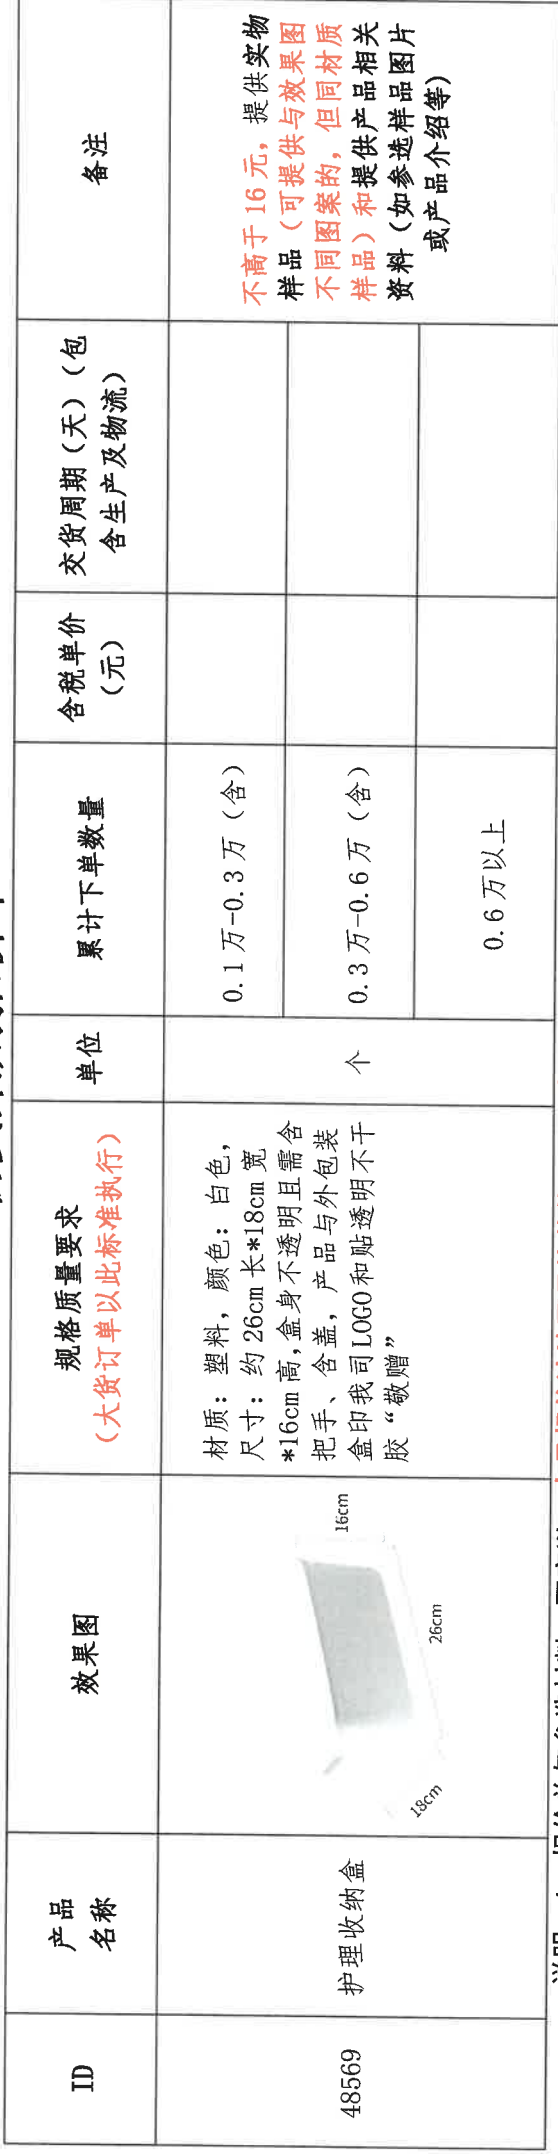 ID
产品
名称
效果图
规格质量要求
（大货订单以此标准执行）
单位
累计下单数量
含税单价
（元）
交货周期（天）（包
含生产及物流）
备注
48569
护理收纳盒
18cm
26cm
16cm
材质：塑料，颜色：白色，
尺寸：约26cm长*18cm宽
*16cm高,盒身不透明且需含
把手、含盖，产品与外包装
盒印我司LOGO和贴透明不干
胶“敬赠”
个
0.1万-0.3万（含）
0.3万-0.6万（含）
0.6万以上
不高于16元，提供实物
样品（可提供与效果图
不同图案的，但同材质
样品）和提供产品相关
资料（如参选样品图片
或产品介绍等）